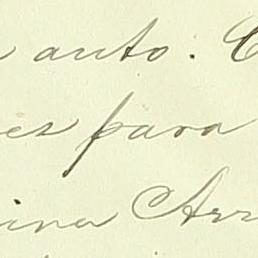 auto. C
es para
ina Arr